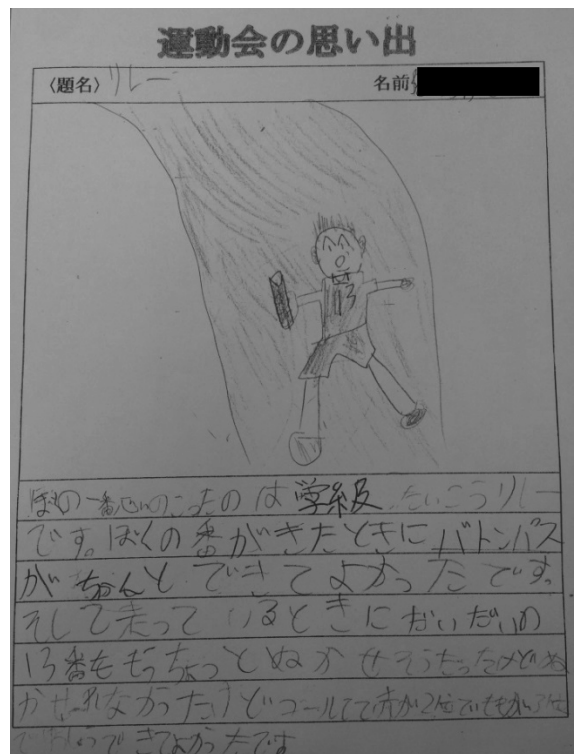 運動会の思い出
〈題名〉リレー 名前
13
ぼくの一番心にのこったのは学級たいこうリレー
です。ぼくの番がきたときにバトンパス
がちゃんとできてよかったです。
そして走っているときにおいだいの
13番をもうちょっとぬかせそうだったけどぬ
かせれなかったけどゴール
できてよかったです